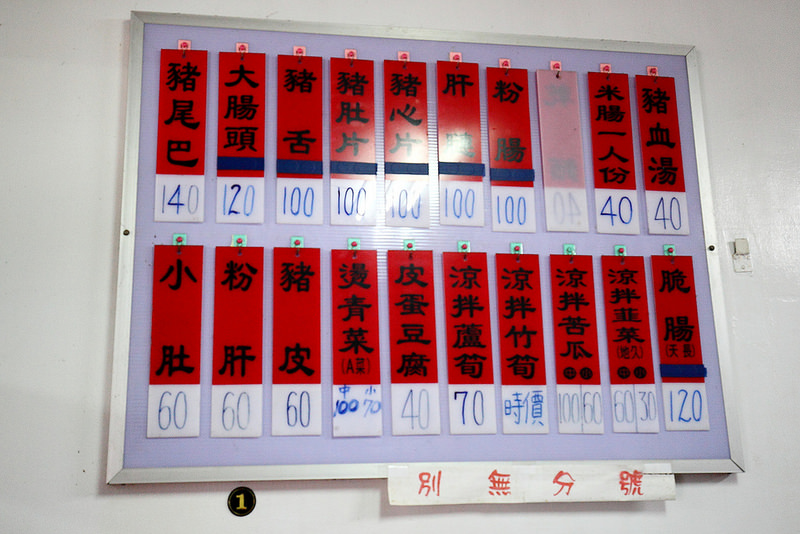 豬尾巴 140
大腸頭 120
豬舌 100
豬肚片 100
豬心片 100
肝 100
粉腸 100
米腸一人份 40
豬血湯 40
小肚 60
粉肝 60
豬皮 60
燙青菜(A菜) 中100 小70
皮蛋豆腐 40
涼拌蘆筍 70
涼拌竹筍 時價
涼拌苦瓜 中 小 100 60
涼拌韭菜(地久) 中 小 60 30
脆腸(天長) 120
別無分號
1